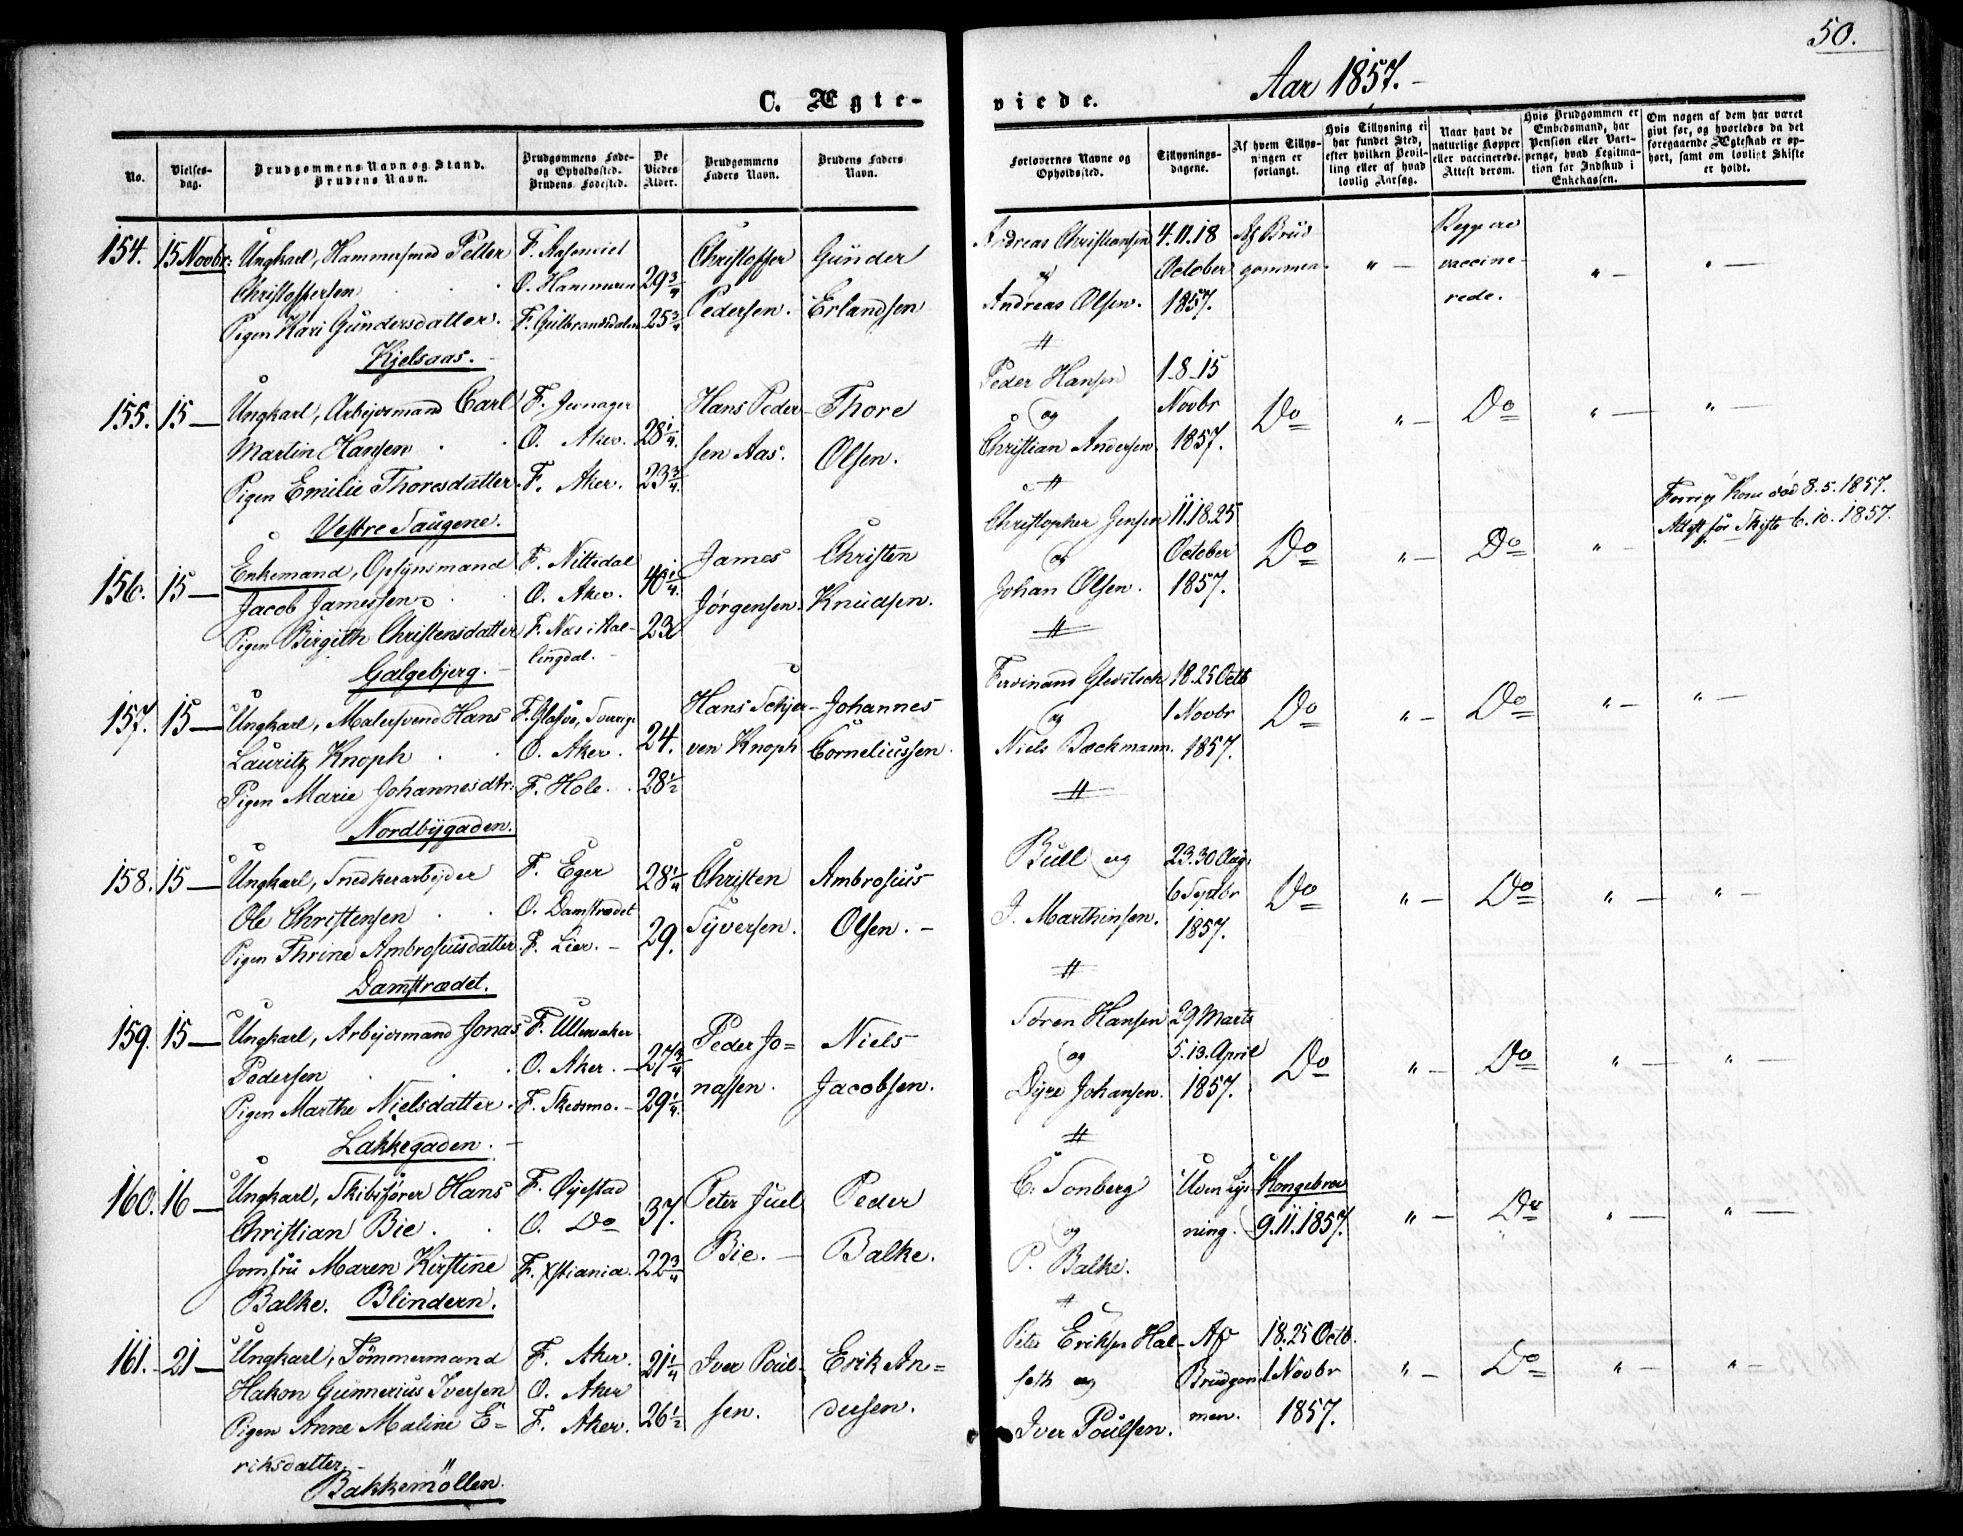 50.
Aar 1857.
C. Ægte-
viede.
No.
Vielses-
dag.
Brudgommens Navn og Stand.
Brudens Navn.
Brudgommens Føde-
og Opholdssted.
Brudens Fødested.
De
Viedes
Alder.
Brudgommens
Faders Navn.
Brudens Faders
Navn.
Forlovernes Navne og
Opholdssted.
Tillysnings-
dagene.
Af hvem Tillys-
ningen er
forlangt.
Hvis Tillysning ei
har fundet Sted,
efter hvilken Bevil-
ling eller af hvad
lovlig Aarsag.
Naar havt de
naturlige Kopper
eller vaccinerede.
Attest derom.
Hvis Brudgommen er
Embedsmand, har
Pension eller Vart-
penge, hvad Legitima-
tion for Indskud i
Enkekassen.
Om nogen af dem har været
gift før, og hvorledes da det
foregaaende Ægteskab er op-
hørt, samt om lovligt Skifte
er holdt.
154. 15 Novbr:
Ungkarl, Hammersmed Petter
Christoffersen
Pigen Kari Gundersdatter.
Kjelsaas.
O. Hammeren
F. Gulbrandsdalen
29 3/4
25 3/4
Christoffer
Pedersen.
Gunder
Erlandsen
Andreas Christiansen
og
Andreas Olsen.
4.11.18
October
1857.
Af Brud
gommen.
" —
Begge ere
vaccine-
rede.
" —
" —
155. 15 —
Ungkarl, Arbejdsmand Carl
Martin Hansen
Pigen Emilie Thoresdatter.
Vestre Taugene.
F. Jevnager
O. Aker.
F. Aker.
28 1/4.
23 3/4.
Hans Peder-
sen Aas.
Thore
Olsen.
Peder Hansen
og
Christian Andersen.
1.8.15
Novbr
1857.
Do
" —
Do
" —
" —
156. 15 —
Enkemand, Opsynsmand
Jacob Jamessen
Pigen Birgith Christensdatter
Galgebjerg.
F. Nittedal
O. Aker.
F. Næs i Hal-
lingdal.
40 1/4.
23
James
Jørgensen.
Christen
Knudsen.
Christopher Jensen
og
Johan Olsen.
11.18.25
October
1857.
Do
" —
Do
" —
Forrige Kone død 8.5.1857.
Attest for Skifte 6.10.1857.
157. 15 —
Ungkarl, Malersvend Hans
Lauritz Knoph
Pigen Marie Johannesdtr.
Nordbygaden.
O. Aker.
F. Hole.
24.
28 1/2
Hans Schjer-
ven Knoph
Johannes
Corneliussen.
Ferdinand Gleditsch
og
Niels Backmann.
18.25 Octb
1 Novbr
1857.
Do
" —
Do
" —
" —
158. 15 —
Ungkarl, Snedkerarbejder
Ole Christensen
Pigen Thrine Ambrosiusdatter.
Damstrædet.
F. Eger
O. Damstrædet
F. Lier.
28 1/4
29.
Christen
Syversen.
Ambrosius
Olsen.
Bull og
J. Marthinsen.
23.30 Aug.
6 Septbr
1857.
Do
" —
Do
" —
" —
159. 15 —
Ungkarl, Arbejdsmand Jonas
Pedersen
Pigen Marthe Nielsdatter.
Lakkegaden.
F. Ullensaker
O. Aker.
F. Skedsmo.
27 3/4
29 1/4.
Peder Jo=
nassen.
Niels
Jacobsen.
Søren Hansen
og
Dyre Johansen.
29 Marts
5.13. April
1857.
Do
" —
Do
" —
" —
160. 16 —
Ungkarl, Skibsfører Hans
Christian Bie.
Jomfru Maren Kirstine
Balke. Blindern.
F. Øyestad
O. Do
F. Xstiania.
37.
22 3/4
Peter Juel
Bie.
Peder
Balke.
C. Tonberg
og
P. Balke.
Uden Lys-
ning.
Kongebrev
9.11.1857.
" —
Do
" —
" —
161. 21 —
Ungkarl, Tømmermand
Hakon Gunnerius Iversen
Pigen Anne Maline E=
riksdatter.
Bakkemøllen.
F. Aker.
O. Aker
F. Aker.
21 1/4
26 1/2
Iver Poul-
sen.
Erik An=
dersen.
Peter Eriksen Hal-
seth og
Iver Poulsen.
Af
Brudgom
men.
18.25 Octb.
1 Novbr
1857.
" —
Do
" —
" —